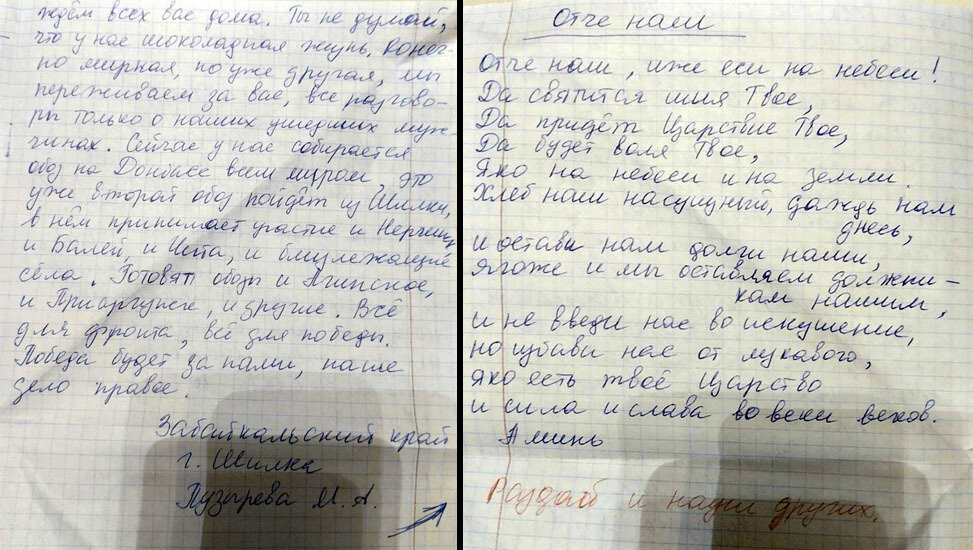 ждём всех вас дома. Ты не думай,
что у нас шоколадная жизнь. Конеч-
но мирная, но уже другая, мы
переживаем за вас, все разгово-
ры только о наших ушедших муж-
чинах. Сейчас у нас собирается
обоз на Донбасс всем миром, это
уже второй обоз пойдёт из Шилки,
в нём принимает участие и Нерчинск
и Балей и Чита, и близлежащие
сёла. Готовят обозы и Агинское,
и Приаргунск, и другие. Всё
для фронта, всё для победы.
Победа будет за нами, наше
дело правое.
Забайкальский край
г. Шилка
Пузырева М. А.
Отче наш
Отче наш, иже еси на небеси!
Да святится имя Твое,
Да придёт Царствие Твое,
Да будет воля Твое,
Яко на небеси и на земли.
Хлеб наш насущный, даждь нам
днесь,
и остави нам долги наши,
якоже и мы оставляем должни-
кам нашим,
и не введи нас во искушение,
но избави нас от лукавого,
яко есть твоё Царство
и сила и слава во веки веков.
Аминь
и наши других.